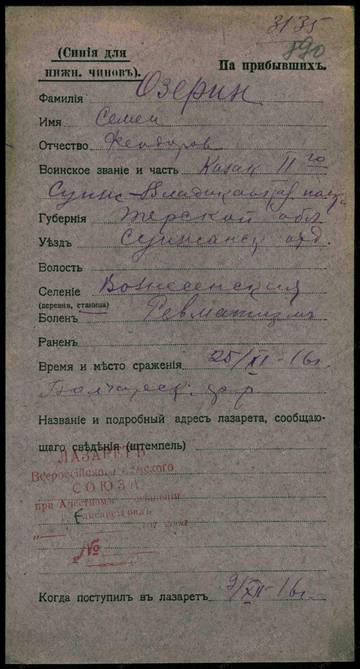 3135
890
(Синія для
нижн. чиновъ).
На прибывшихъ.
Фамилія Озерин
Имя Семен
Отчество Феодоров
Воинское званіе и часть Казак II го
Сунж-Владикавказ полка
Губернія Терской обл
Уѣздъ Сунженск отд.
Волость
Селеніе Вознесенския
(деревня, станица)
Боленъ Ревматизмъ
Раненъ
Время и мѣсто сраженія 25/XI-16г.
Названіе и подробный адресъ лазарета, сообщаю-
щаго свѣдѣнія (штемпель)
ЛАЗАРЕТЪ
Всероссійскаго Земского
СОЮЗА
при
№
Когда поступилъ въ лазаретъ 9/XII-16г